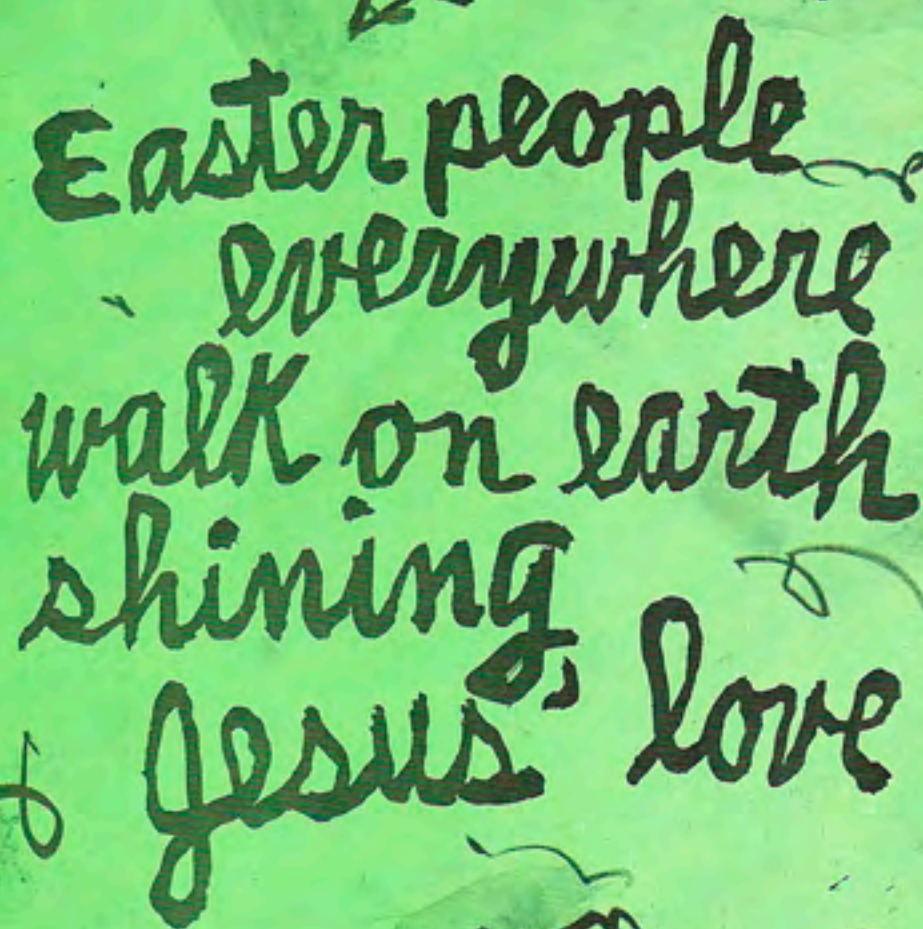 Easter people
everywhere
walk on earth
shining
Jesus' love